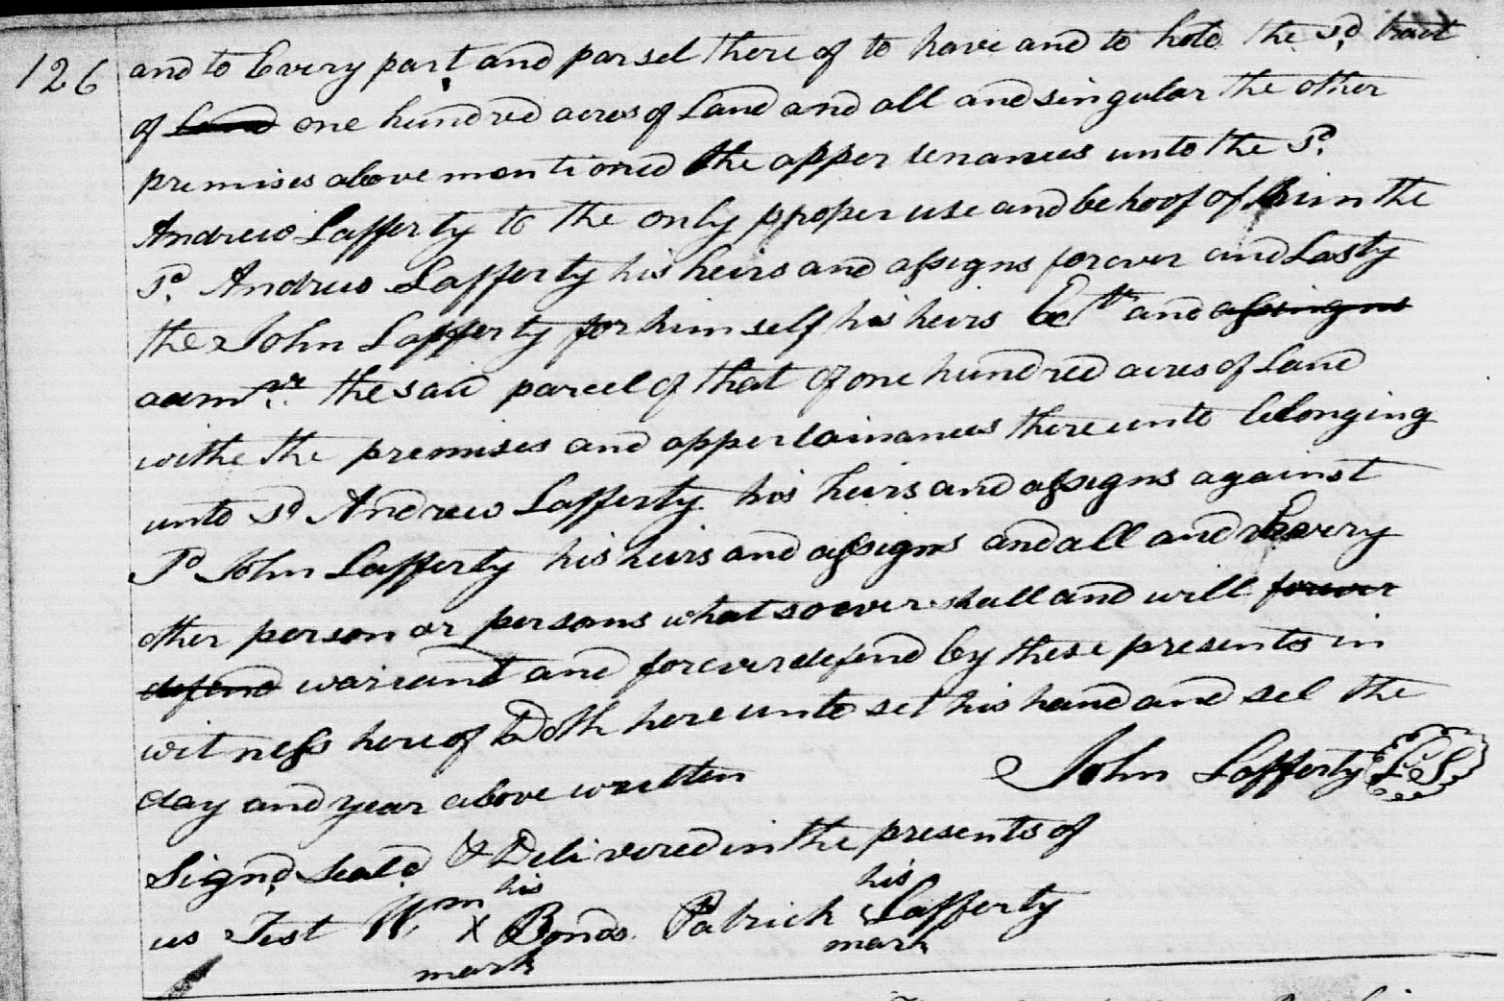 126
and to Every part and parsel there of to have and to hold the sd. tract
of Land one hundred acres of Land and all and singular the other
premises above mentioned the appertenances unto the Sd.
Andrew Lafferty to the only proper use and behoof of him the
Sd. Andrew Lafferty his heirs and assigns forever and Lasty
the John Lafferty for him self his heirs and assigns
admrs. the said parcel of that of one hundred acres of Land
withe the premises and appertainances thereunto belonging
unto sd Andrew Lafferty his heirs and assigns against
Sd John Lafferty his heirs and assigns and all and Every
other person or persons whatsoever shall and will forever
defend warrant and forever defend by these presents in
witness here of Doth hereunto set his hand and sel the
day and year above written
John Lafferty LS
Signd. Seald. & Delivered in the presents of
his his
us Test Wm X Bonds. Patrick Lafferty
mark mark